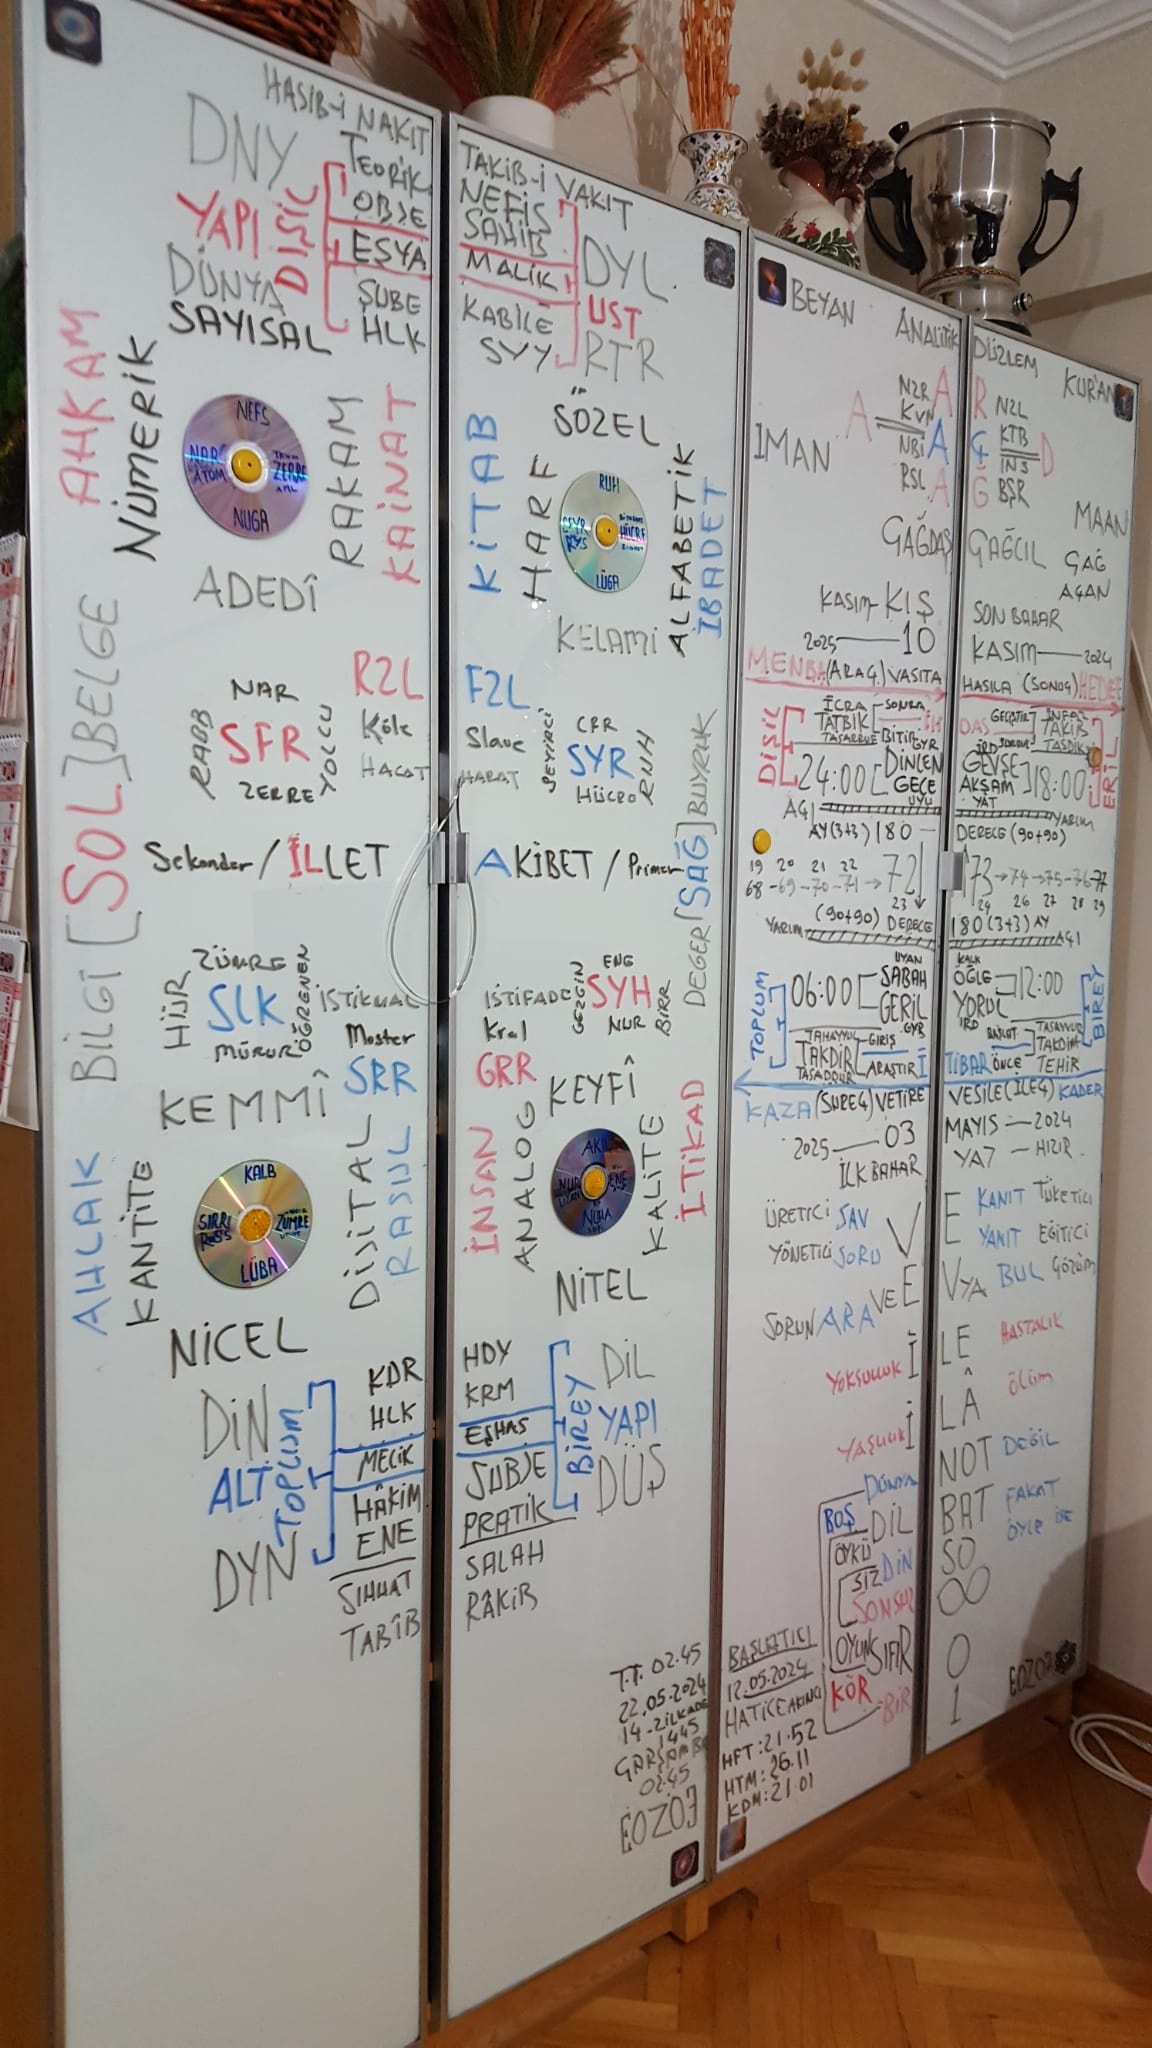 HASIB-İ NAKIT
DNY
TEORİK
OBJE
YAPI
DİŞİL
EŞYA
DÜNYA
ŞUBE
SAYISAL
HLK
AHKAM
NÜMERİK
NEFS
ZERRE
ATOM
NUGA
RAKAM
KAİNAT
ADEDÎ
BELGE
[SOL]
BİLGİ
NAR
RZL
RABB
SFR
YOLCU
Köle
ZERRE
HACAT
Sekonder / İLLET
ZÜMRE
HÜR
SLK
ÖĞRENEN
İSTİKMAL
MÜRUR
Master
SRR
KEMMÎ
AHLAK
KANTİTE
KALB
SIRRI
ZÜMRE
LÜBA
DİJİTAL
RASUL
NİCEL
KDR
DİN
HLK
ALT
TOPLUM
MELİK
HÂKİM
DYN
ENE
SIHHAT
TABÎB
TAKİB-İ VAKIT
NEFİS
SAHİB
DYL
MALİK
UST
KABİLE
SYY
RTR
SÖZEL
KİTAB
HARF
RUH
HÜCRE
LÜGA
ALFABETİK
İBADET
KELAMİ
FZL
Slave
SEYİRCİ
CFR
SYR
RUH
HARAT
HÜCRE
BUYRUK
[SAĞ]
DEĞER
AKİBET / Primer
ENE
İSTİFADE
GEZGİN
SYH
BİRR
Kral
NUR
GRR
KEYFÎ
İNSAN
ANALOG
AKIL
NUR
ENE
NUHA
KALİTE
İTİKAD
NİTEL
HDY
DİL
KRM
BİREY
YAPI
EŞHAS
SUBJE
DÜŞ
PRATİK
SALAH
RÂKİB
T.T. 02.45
22.05.2024
14-ZİLKADE
1445
ÇARŞAMBA
02.45
EOZO3
BEYAN ANALİTİK
NZR A
A KVN
İMAN NBİ A
RSL A
ÇAĞDAŞ
KASIM-KIŞ
2025 — 10
MENBA (ARAÇ) VASITA
İCRA SONRA
DİŞİL
TATBİK
BİTİR
24:00 [DİNLEN
GECE
UYU
AÇI
AY (3+3) 180
19 20 21 22
68-69-70-71→72
23
(90+90) DERECE
YARIM
UYAN
TOPLUM
06:00 [SABAH
GERİL
TAHAYYÜL GİRİŞ
TAKDİR
ARAŞTIR
KAZA (SÜREÇ) VETİRE
2025 — 03
İLK BAHAR
ÜRETİCİ SAV V
YÖNETİCİ SORU
VE E
SORUN ARA
YOKSULLUK İ
YAŞLILIK İ
DÜNYA
BOŞ DİL
ÖYKÜ
SIZ DİN
SONSUZ
OYUN SIFIR
KÖR
BİR
BAŞLATICI
12.05.2024
HATİCE AKINCI
HFT: 21.52
HTM: 26.11
KDM: 21.01
DÜZLEM KUR'AN
R NZL
Ç KTB D
İNS
Ğ BŞR
MAAN
ÇAĞCIL
ÇAĞ
AÇAN
SON BAHAR
KASIM — 2024
HASILA (SONUÇ) HEDEF
TAKİB
TASDİK
ERİL
GEVŞE
AKŞAM ] 18:00
YAT
YARIM
DERECE (90+90)
73→74→75-76-77
24 26 27 28 29
180 (3+3) AY
AÇI
KALK
ÖĞLE ] 12:00
YORUL
BİREY
TASAVVUR
TAKDİM
ÖNCE TEHİR
VESİLE (İLEÇ) KADER
MAYIS — 2024
YAZ — HIZIR
E KANIT TÜKETİCİ
YANIT EĞİTİCİ
VYA BUL ÇÖZÜM
LE HASTALIK
LÂ ÖLÜM
NOT DEĞİL
BAT FAKAT
SO ÖYLE İSE
∞
0
1